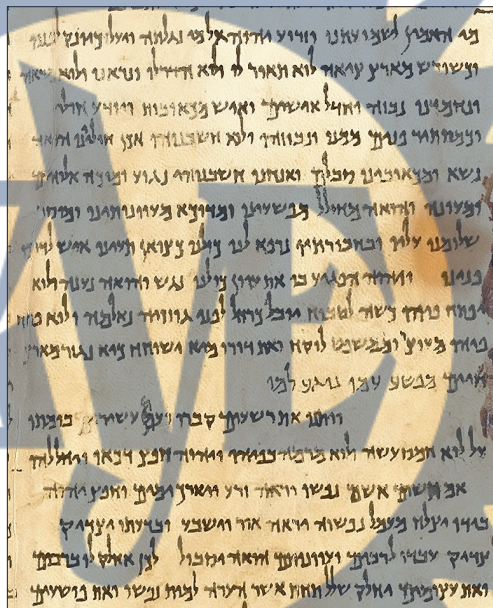 מי האמין לשמועתנו וזרוע יהוה אל מי נגלתה ויעל כיונק לפניו
וכשורש מארץ ציה לוא תואר לו ולוא הדר לו ונראנו ולוא מראה
ונחמדנו נבוזה וחדל אישים ואיש מכאובות ויודע חולי
וכמסתר פנים ממנו ונבוזהו ולוא חשבנוהו אכן חוליינו הואה
נשא ומכאובינו סבלם ואנחנו חשבנוהו נגוע ומוכה אלוהים
ומעונה והואה מחולל מפשעינו ומדוכא מעוונותינו ומוסר
שלומנו עליו ובחבורתיו נרפא לנו כולנו כצואן תעינו איש לדרכו
פנינו ויהוה הפגיע בו את עוון כולנו נגש והואה נענה ולוא
יפתח פיהו כשה לטבוח יובל כרחל לפני גוזזיה נאלמה ולוא פתח
פיהו מעוצר וממשפט לוקח ואת דורו מיא ישוחח כיא נגזר מארץ
חיים מפשע עמו נוגע למו
ויתנו את רשעים קברו ועם עשיר בומתו
על לוא חמס עשה ולוא מרמה בפיהו ויהוה חפץ דכאו ויחללהו
אם תשים אשם נפשו יראה זרע ויארך ימים וחפץ יהוה
בידו יצלח מעמל נפשוה יראה אור וישבע ובדעתו יצדיק
צדיק עבדו לרבים ועוונותם הואה יסבול לכן אחלק לו ברבים
ואת עצומים יחלק שלל תחת אשר הערה למות נפשו ואת פושעים